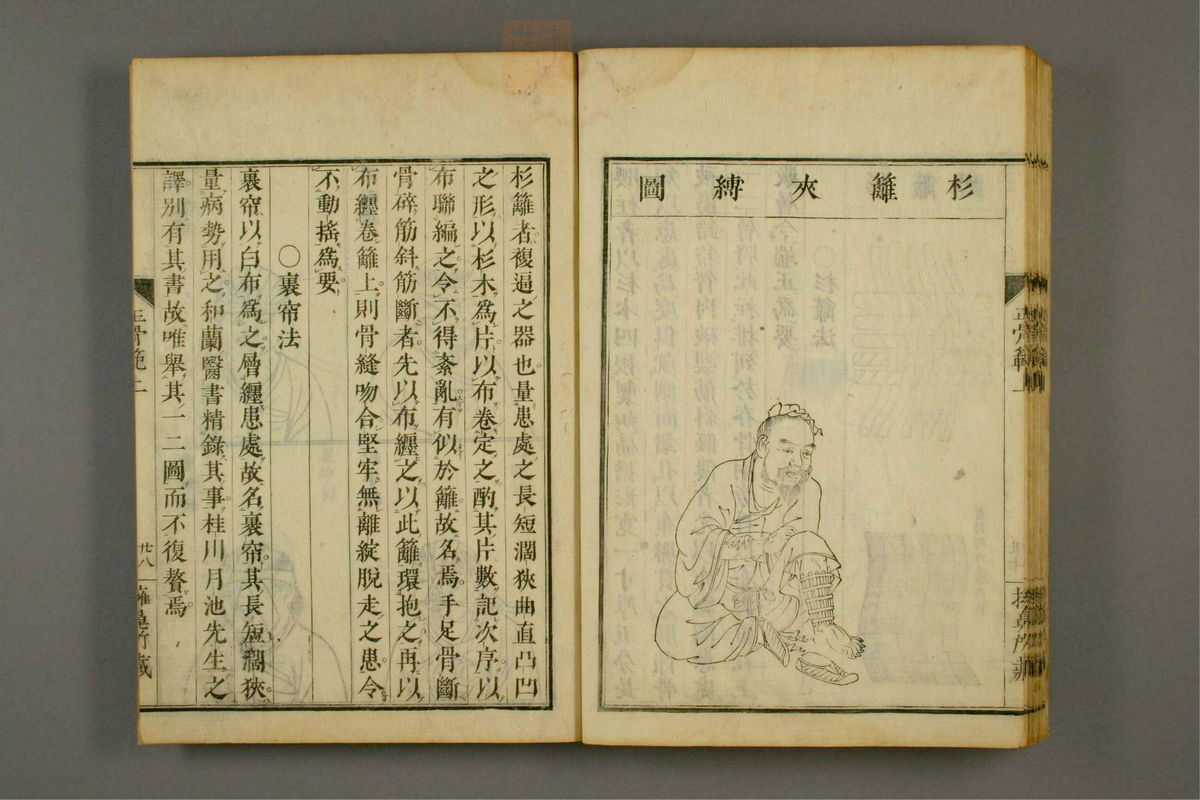 杉籬夾縛圖
杉籬者複逼之器也量患處之長短濶狹曲直凸凹
之形以杉木爲片以布卷定之酌其片數記次序以
布聯編之令不得紊亂有似於籬故名焉手足骨斷
骨碎筋斜筋斷者先以布纏之以此籬環抱之再以
布纏卷籬上則骨縫吻合堅牢無離綻脫走之患令
不動搖爲要
〇裹帘法
裹帘以白布爲之層纏患處故名裹帘其長短濶狹
量病勢用之和蘭醫書精錄其事桂川月池先生之
譯別有其書故唯舉其一二圖而不復贅焉
正骨範二
廿八